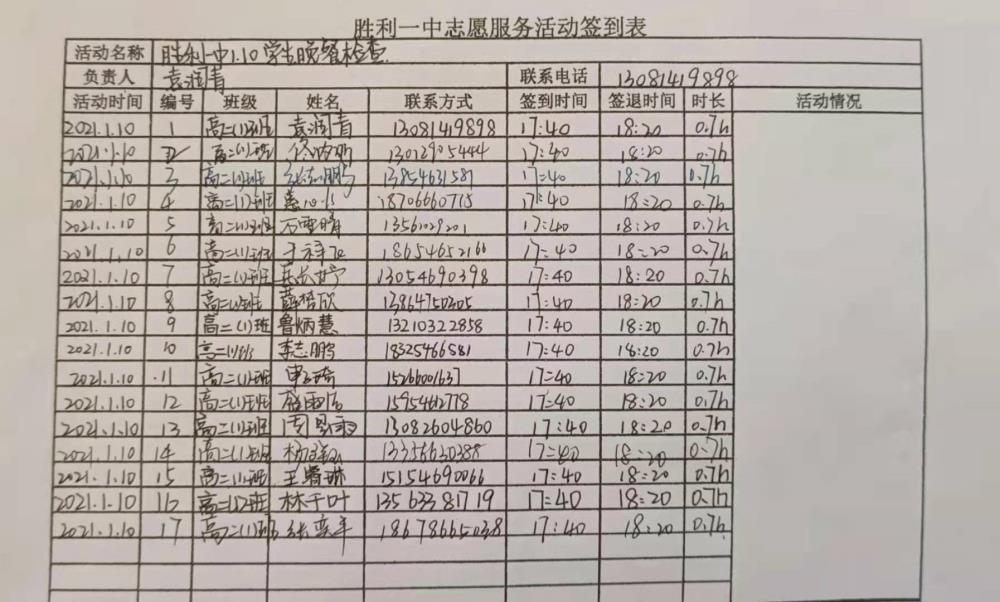 胜利一中志愿服务活动签到表
活动名称 胜利一中1.10学生晚餐检查
负责人 袁润青 联系电话 13081419898
活动时间 编号 班级 姓名 联系方式 签到时间 签退时间 时长 活动情况
2021.1.10 1 高二(1)班 袁润青 13081419898 17:40 18:20 0.7h
2021.1.10 2 高二(1)班 13012905444 17:40 18:20 0.7h
2021.1.10 3 高二(1)班 13854631581 17:40 18:20 0.7h
2021.1.10 4 高二(1)班 18706660715 17:40 18:20 0.7h
2021.1.10 5 高二(1)班 石雪晴 13561029201 17:40 18:20 0.7h
2021.1.10 6 高二(1)班 18654652166 17:40 18:20 0.7h
2021.1.10 7 高二(1)班 13054690398 17:40 18:20 0.7h
2021.1.10 8 高二(1)班 薛哲欣 13864750205 17:40 18:20 0.7h
2021.1.10 9 高二(1)班 鲁炳慧 13210322858 17:40 18:20 0.7h
2021.1.10 10 高二(1)班 李志鹏 18325466581 17:40 18:20 0.7h
2021.1.10 11 高二(1)班 15266001637 17:40 18:20 0.7h
2021.1.10 12 高二(1)班 15954612778 17:40 18:20 0.7h
2021.1.10 13 高二(1)班 13082604860 17:40 18:20 0.7h
2021.1.10 14 高二(1)班 13356630388 17:40 18:20 0.7h
2021.1.10 15 高二(1)班 王睿琳 15154690066 17:40 18:20 0.7h
2021.1.10 16 高二(1)班 林千叶 13563381719 17:40 18:20 0.7h
2021.1.10 17 高二(1)班 张奕年 18678665038 17:40 18:20 0.7h